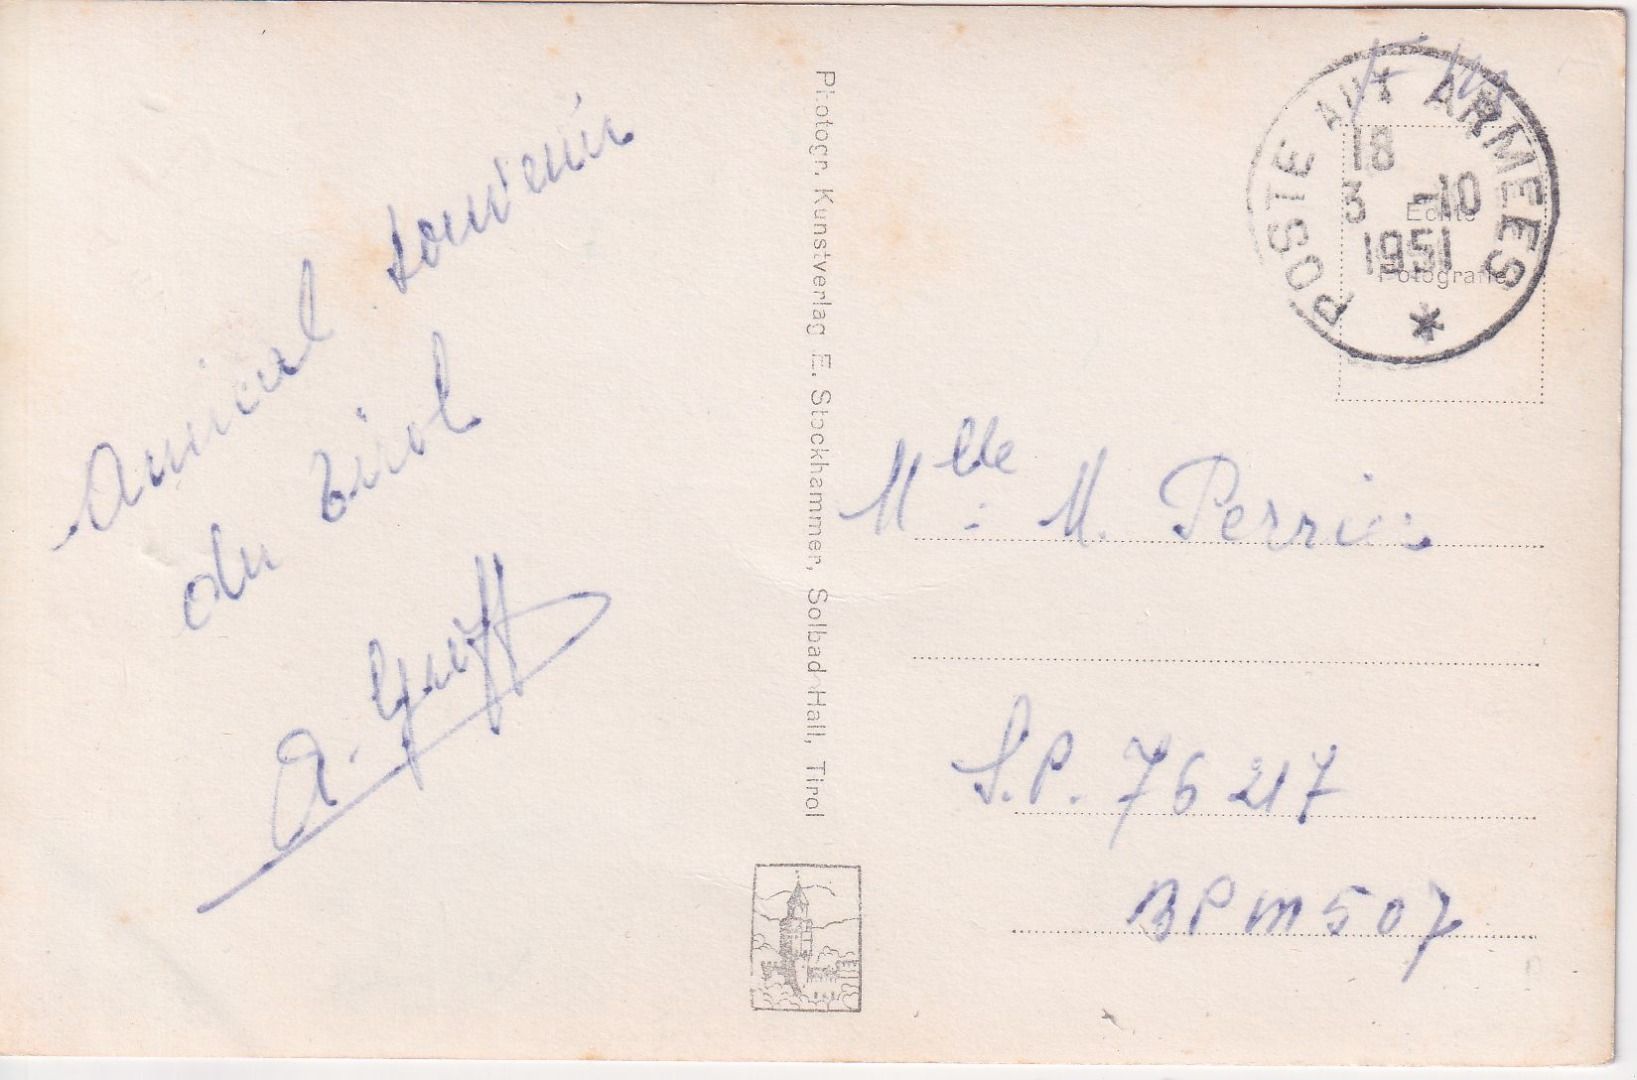 Amical souvenir
du Tirol
Photogr. Kunstverlag E. Stockhammer, Solbad Hall, Tirol
POSTE AUX ARMEES
18
3 -10
1951
*
Echte
Fotografie
Mlle M. Perrier
S.P. 76217
BPM 507